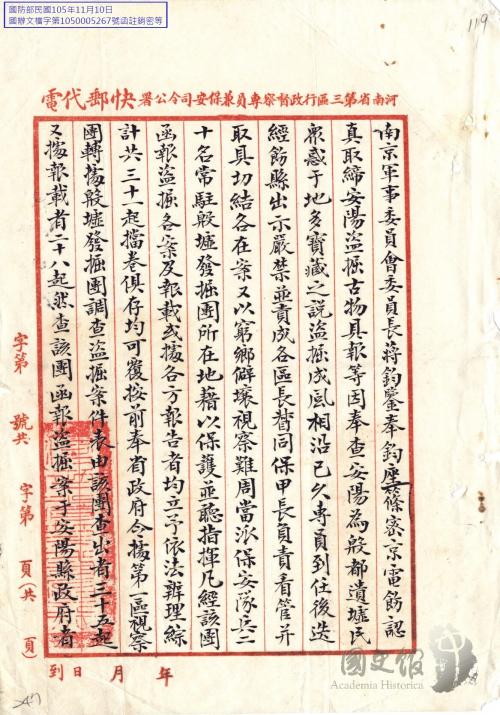 國防部民國105年11月10日
國辦文檔字第1050005267號函註銷密等
119
河南省第三區行政督察專員兼保安司令公署快郵代電
南京軍事委員會委員長蔣鈞鑒奉鈞座篠密京電飭認
真取締安陽盜掘古物具報等因奉查安陽為殷都遺墟民
衆惑于地多寶藏之說盜掘成風相沿已久專員到任後迭
經飭縣出示嚴禁並責成各區長督同保甲長負責看管并
取具切結各在案又以窮鄉僻壤視察難周當派保安隊兵二
十名常駐殷墟發掘團所在地藉以保護並聽指揮凡經該團
函報盜掘各案及報載或據各方報告者均立予依法辦理綜
計共三十一起檔卷俱存均可覆按前奉省政府令據第一區視察
團轉據殷墟發掘團調查盜掘案件表由該團查出者三十五起
又據報載者二十八起然查該團函報盜掘案于安陽縣政府者
字第 號共 字第 頁(共 頁)
年 月 日到
國史館
Academia Historica